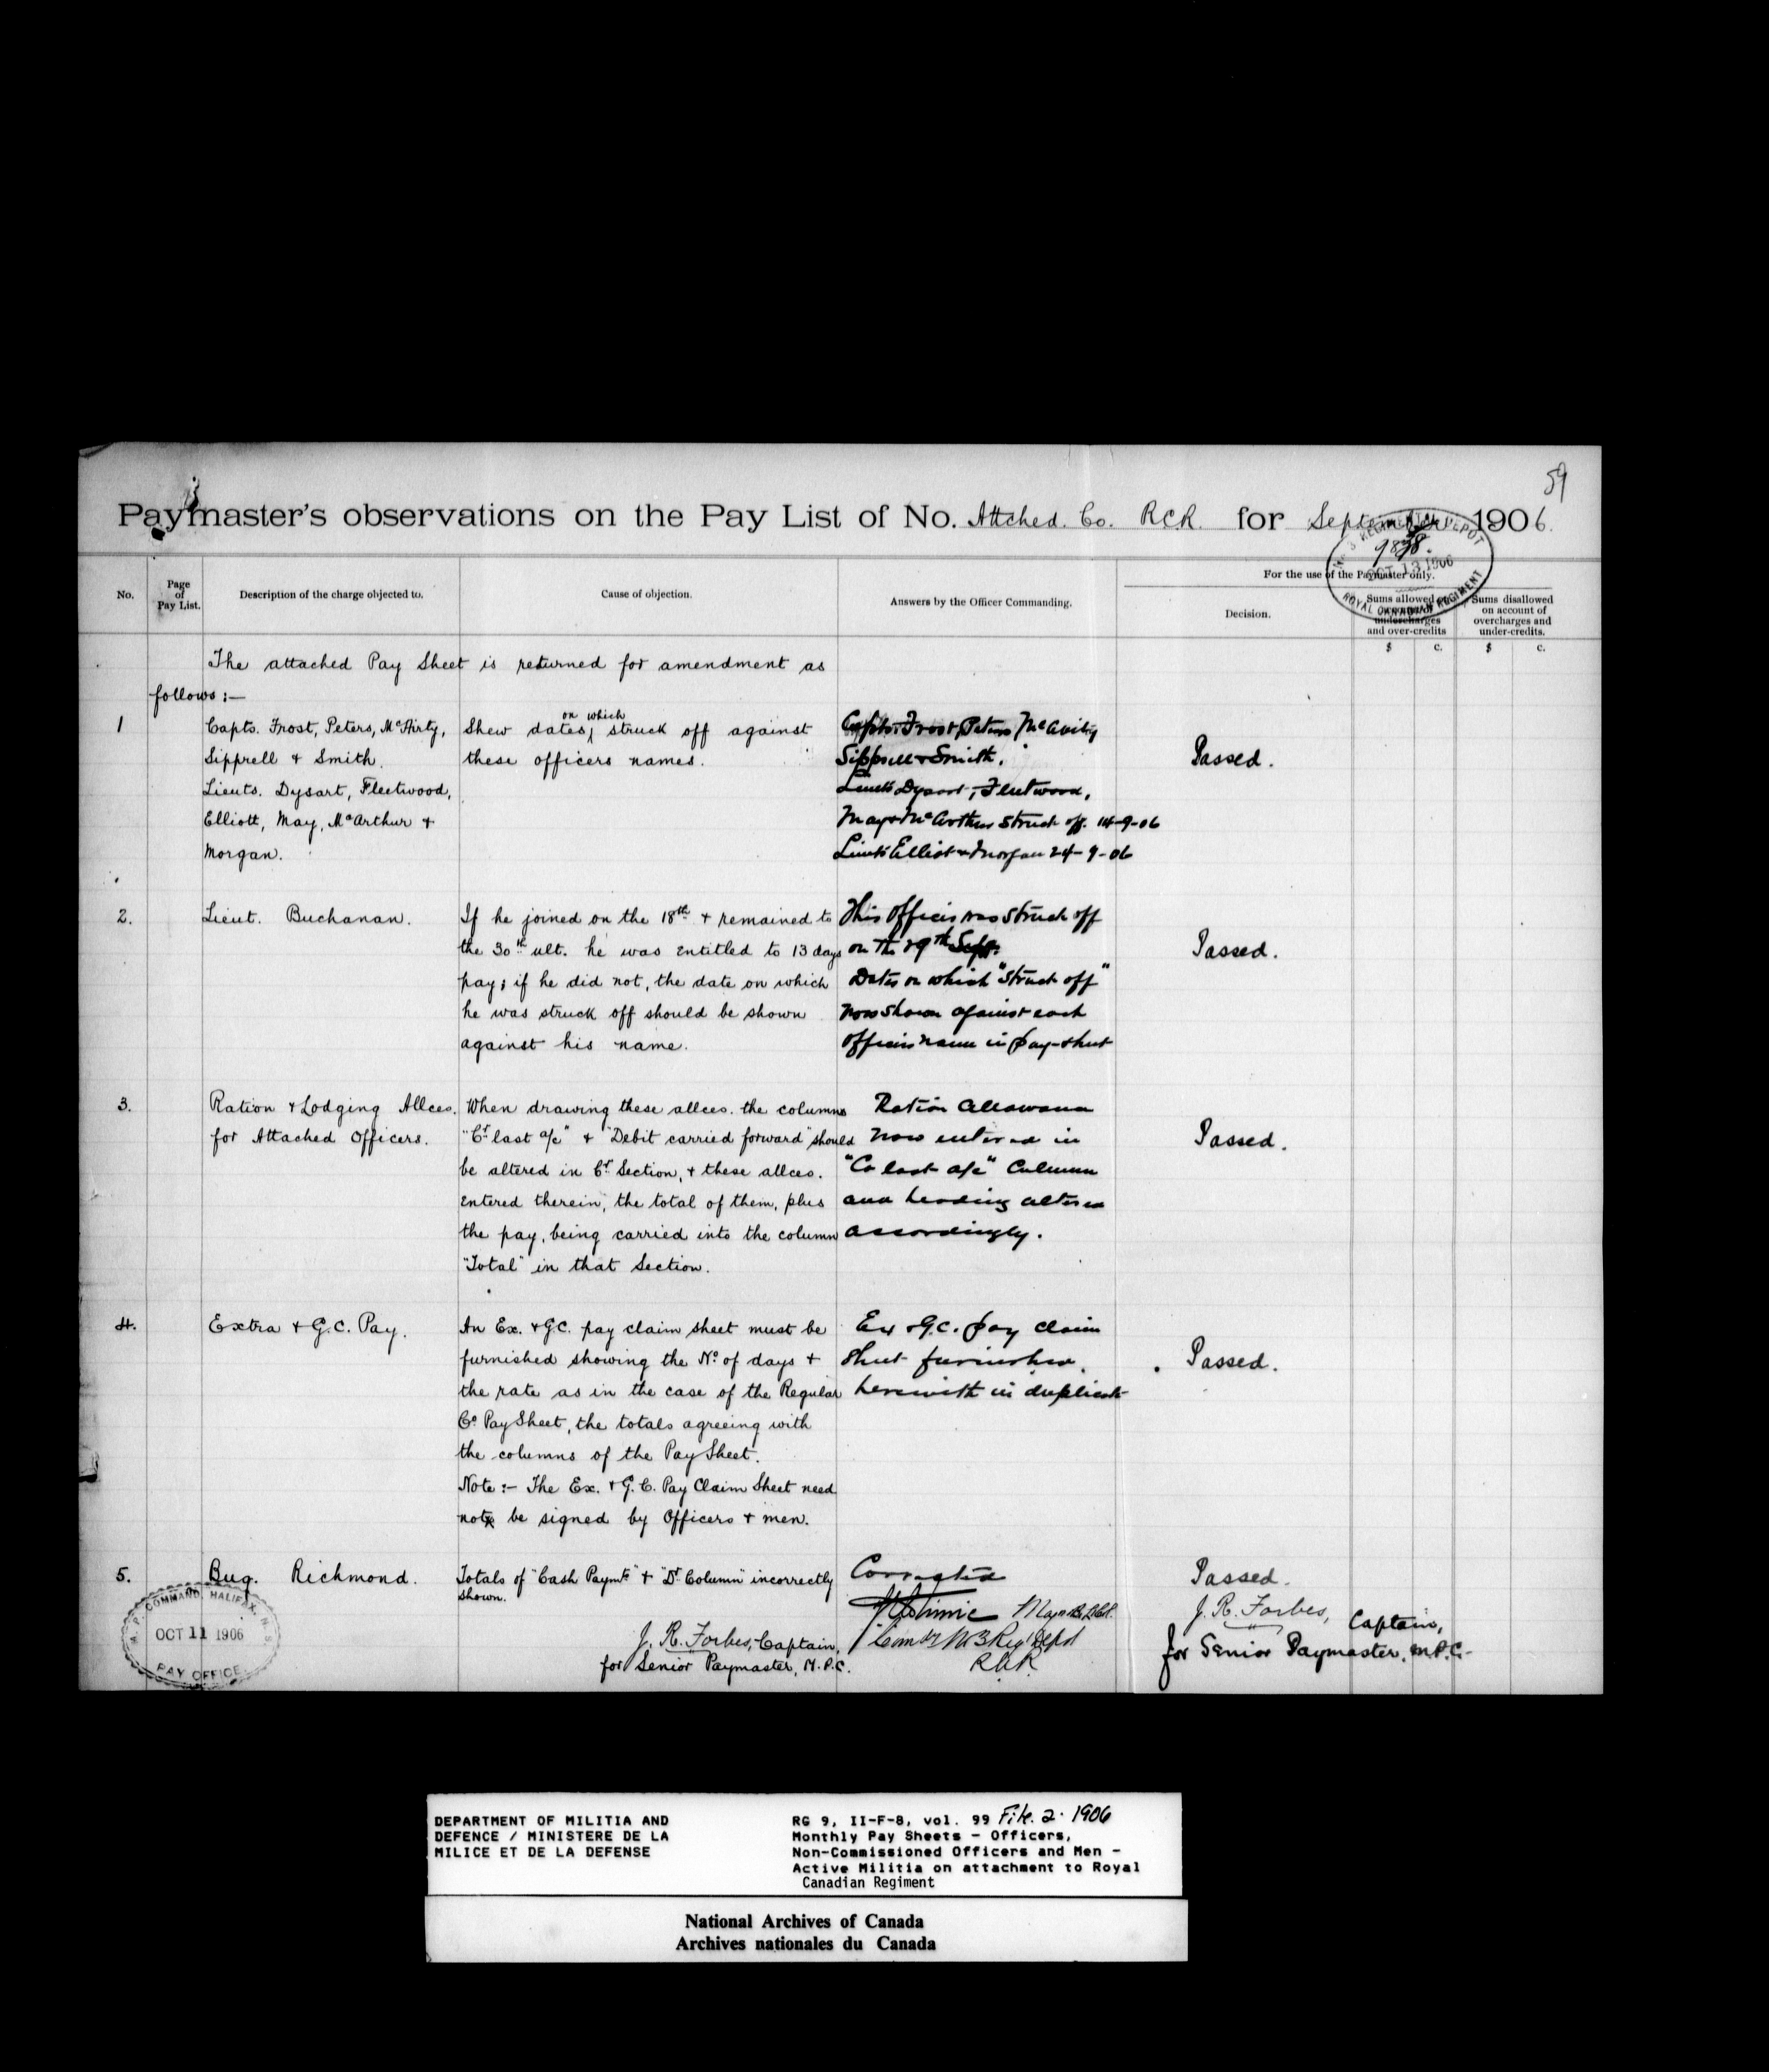 59
Paymaster's observations on the Pay List of No. Attched. Co. R.C.R. for September 1906.
No. 3 REGIMENTAL DEPOT
OCT 13 1906
ROYAL CANADIAN REGIMENT
No.
Page of Pay List.
Description of the charge objected to.
Cause of objection.
Answers by the Officer Commanding.
For the use of the Paymaster only.
Decision.
Sums allowed
undercharges
and over-credits
Sums disallowed
on account of
overcharges and
under-credits.
$ c. $ c.
The attached Pay Sheet is returned for amendment as
follows :—
1
Capts. Frost, Peters, McAvity,
Sipprell + Smith.
Lieuts. Dysart, Fleetwood,
Elliott, May, McArthur +
Morgan.
Shew dates on which struck off against
these officers names.
Capts. Frost, Peters McAvity
Sipprell + Smith.
Lieuts Dysart, Fleetwood,
May + McArthur struck off. 14-9-06
Lieuts Elliot + Morgan 24-9-06
Passed.
2.
Lieut. Buchanan.
If he joined on the 18th + remained to
the 30th ult. he was entitled to 13 days
pay; if he did not, the date on which
he was struck off should be shown
against his name.
This Officer was struck off
on the 29th Sept.
Dates on which "Struck off"
now shown against each
officers name in pay-sheet
Passed.
3.
Ration + Lodging Allces.
for Attached Officers.
When drawing these allces. the columns
"Cr last a/c" + "Debit carried forward" should
be altered in Cr. Section, + these allces.
entered therein, the total of them, plus
the pay, being carried into the column
"Total" in that Section.
Ration Allowance
now entered in
"Cr last a/c" Column
and heading altered
accordingly.
Passed.
4.
Extra + G.C. Pay.
An Ex. + G.C. pay claim sheet must be
furnished showing the No. of days +
the rate as in the case of the Regular
Co. Pay Sheet, the totals agreeing with
the columns of the Pay Sheet.
Note :- The Ex. + G.C. Pay Claim Sheet need
not be signed by Officers + men.
Ex + G.C. pay claim
sheet furnished
herewith in duplicate
Passed.
5.
Bug. Richmond.
Totals of "Cash Paymts" + "Dr. Column" incorrectly
shown.
J. R. Forbes, Captain,
for Senior Paymaster, M.P.C.
Corrected
Major R.C.R.
Comdg No 3 Reg'l Depot
R.C.R.
Passed.
J. R. Forbes, Captain,
for Senior Paymaster, M.P.C.
COMMAND, HALIFAX, N.S.
OCT 11 1906
PAY OFFICE
DEPARTMENT OF MILITIA AND
DEFENCE / MINISTERE DE LA
MILICE ET DE LA DEFENSE
RG 9, II-F-8, vol. 99 File. 2. 1906
Monthly Pay Sheets - Officers,
Non-Commissioned Officers and Men -
Active Militia on attachment to Royal
Canadian Regiment
National Archives of Canada
Archives nationales du Canada